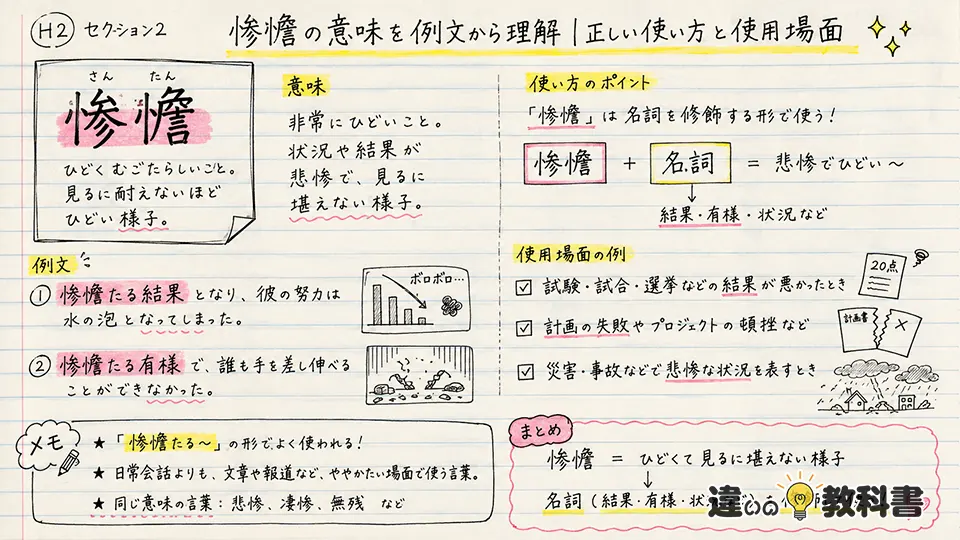 H2 セクション2
惨憺の意味を例文から理解|正しい使い方と使用場面
さん たん
惨憺
ひどくむごたらしいこと。
見るに耐えないほど
ひどい様子。
意味
非常にひどいこと。
状況や結果が
悲惨で、見るに
堪えない様子。
使い方のポイント
「惨憺」は名詞を修飾する形で使う!
惨憺 + 名詞 = 悲惨でひどい～
結果・有様・状況など
例文
① 惨憺たる結果となり、彼の努力は
水の泡となってしまった。
ボロボロ…
② 惨憺たる有様で、誰も手を差し伸べる
ことができなかった。
使用場面の例
☑ 試験・試合・選挙などの結果が悪かったとき
20点
☑ 計画の失敗やプロジェクトの頓挫など
計画書
☑ 災害・事故などで悲惨な状況を表すとき
メモ
★ 「惨憺たる～」の形でよく使われる!
★ 日常会話よりも、文章や報道など、ややかたい場面で使う言葉。
★ 同じ意味の言葉：悲惨、凄惨、無残 など
まとめ
惨憺 = ひどくて見るに堪えない様子
↓
名詞(結果・有様・状
違いの教科書